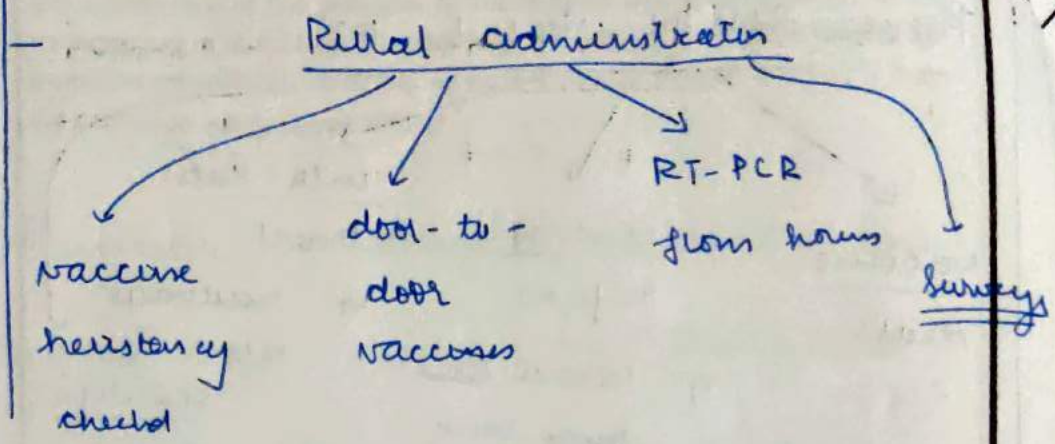 Rural administration
vaccine
hesistency
checked
door-to-
door
vaccines
RT-PCR
from homes
Surveys